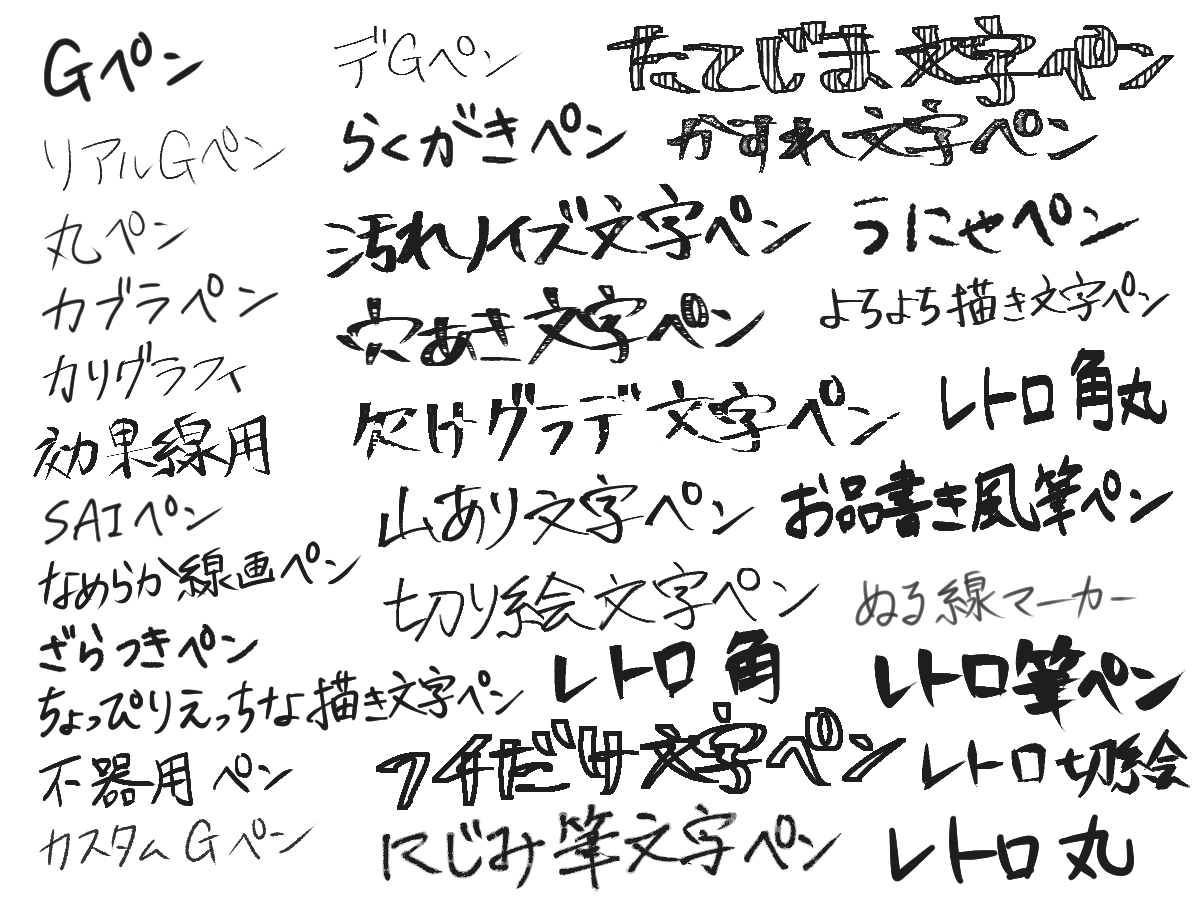 Gペン
リアルGペン
丸ペン
カブラペン
カリグラフィ
効果線用
SAIペン
なめらか線画ペン
ざらつきペン
ちょっぴりえっちな描き文字ペン
不器用ペン
カスタムGペン
デGペン
らくがきペン
汚れノイズ文字ペン
穴あき文字ペン
欠けグラデ文字ペン
山あり文字ペン
切り絵文字ペン
レトロ角
フチだけ文字ペン
にじみ筆文字ペン
たてじま文字ペン
かすれ文字ペン
うにゃペン
よろよろ描き文字ペン
レトロ角丸
お品書き風筆ペン
ぬる線マーカー
レトロ筆ペン
レトロ切絵
レトロ丸